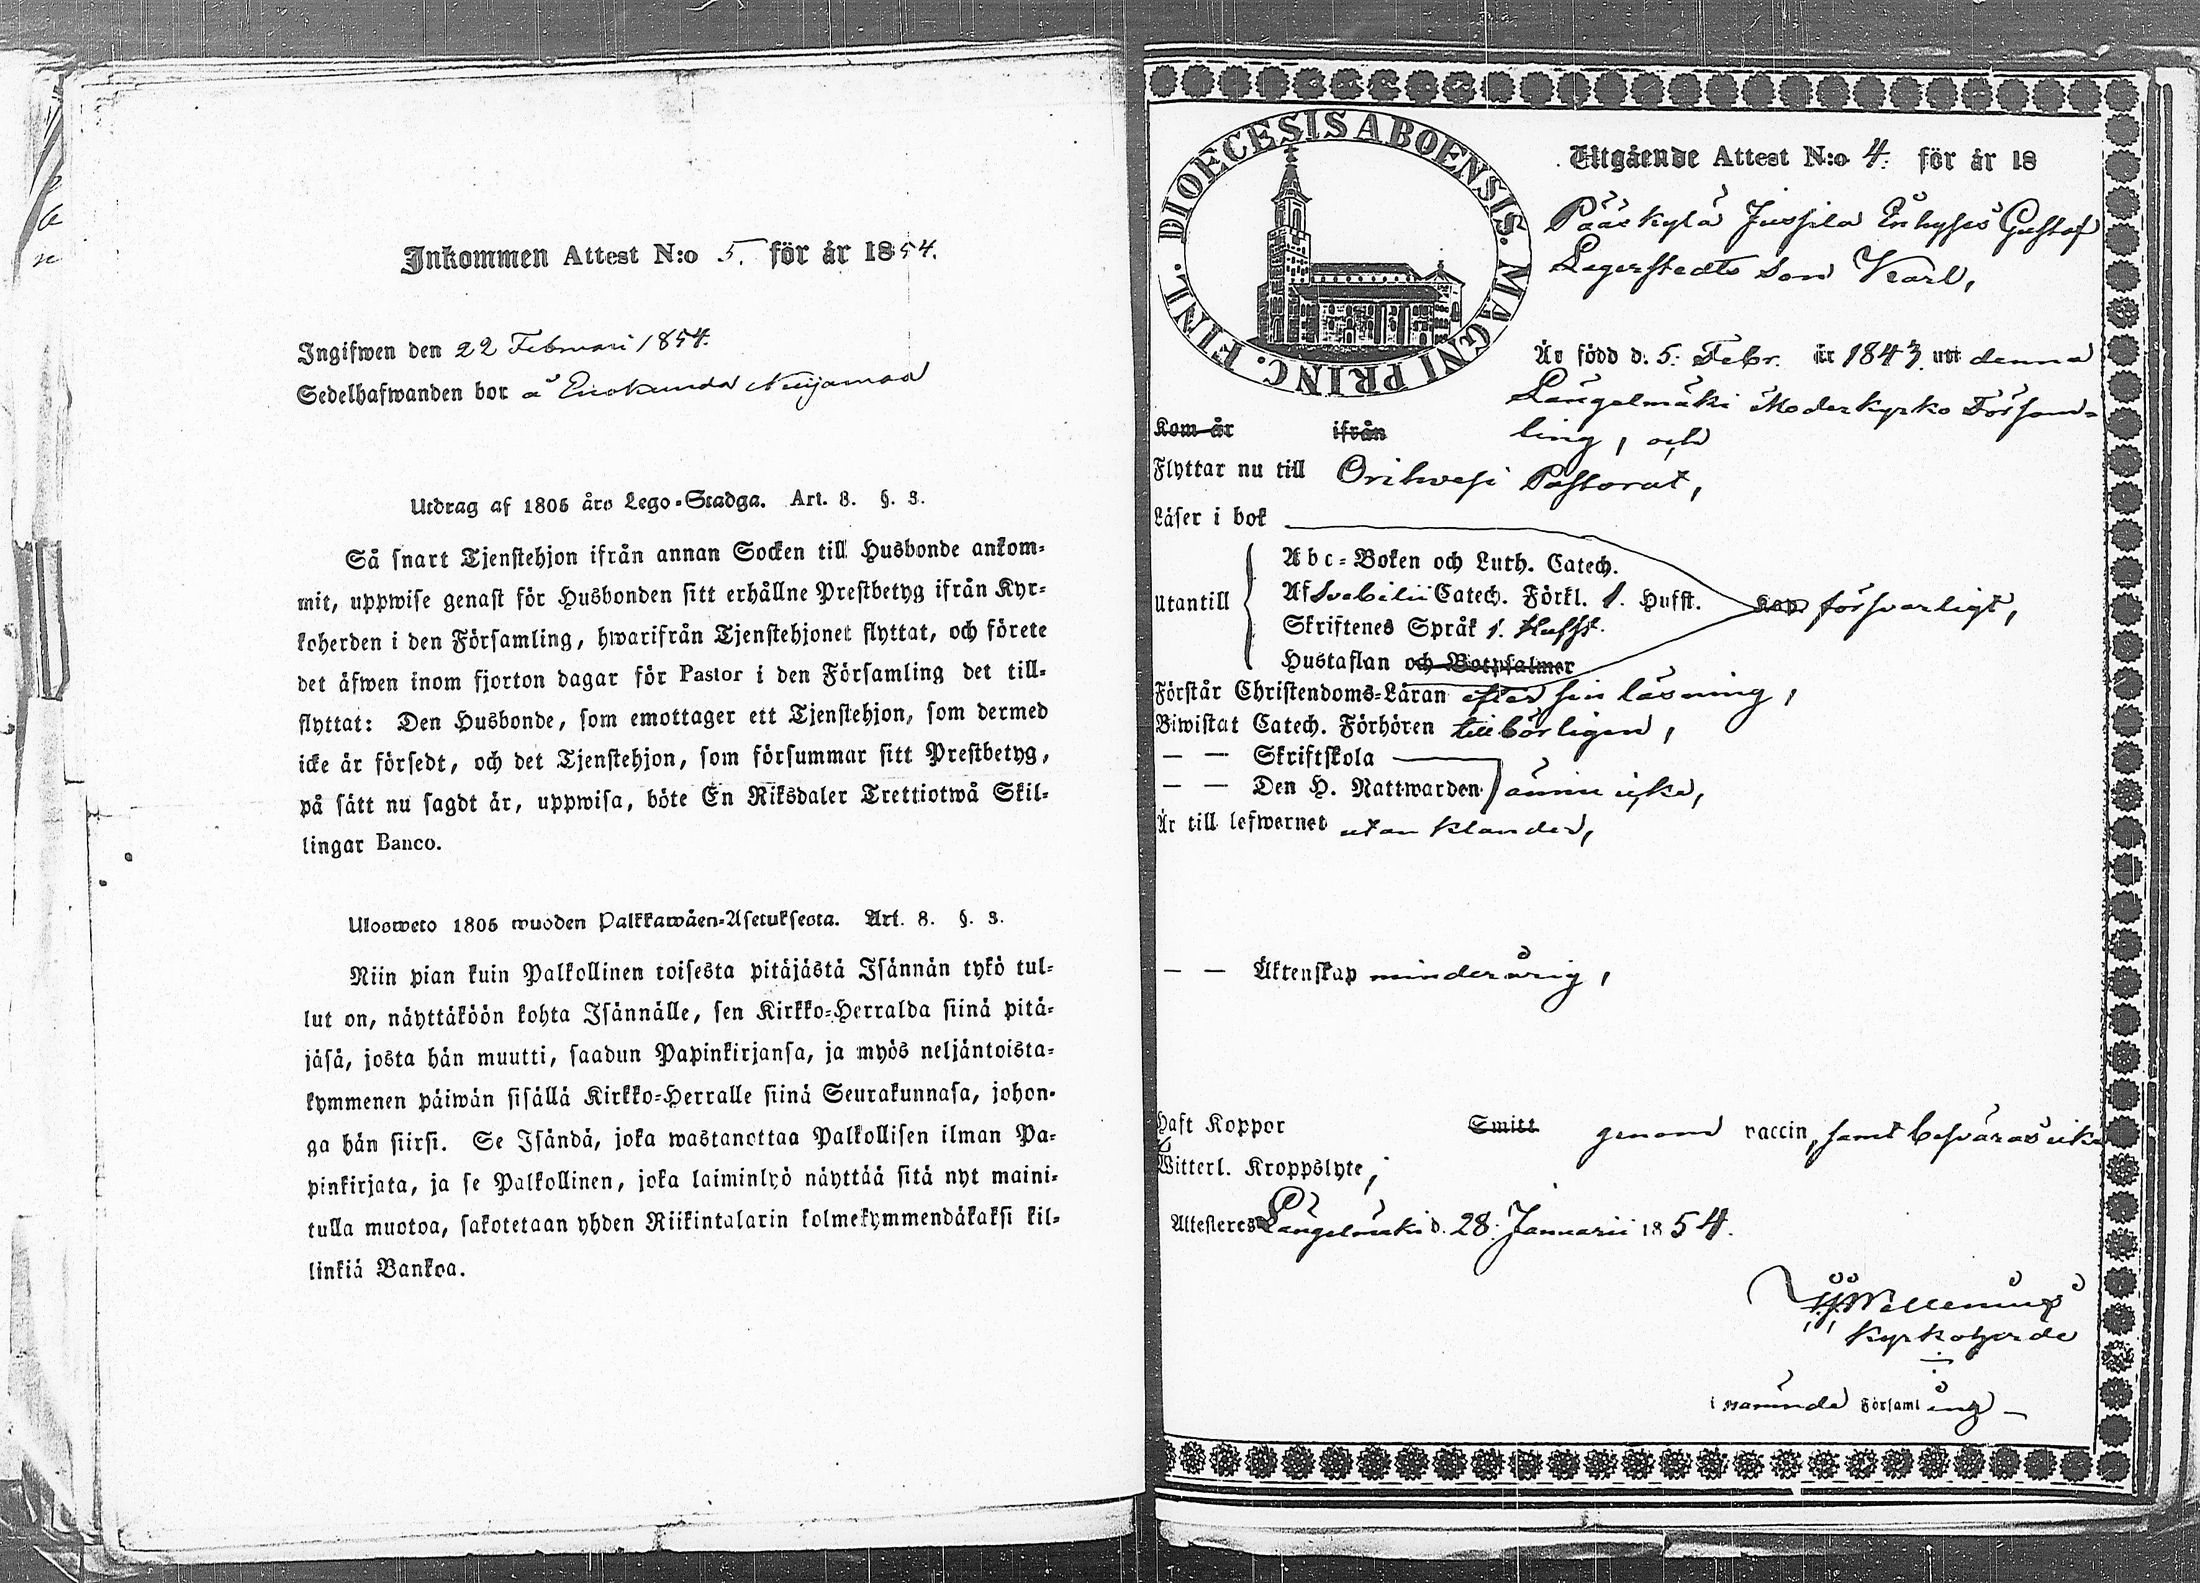 Inkommen Attest N:o 5. för år 1854.
Ingifwen den 22 Februari 1854.
Sedelhafwanden bor å Enokunda Nuijamaa
Utdrag af 1805 års Lego-Stadga. Art. 8. §. 3.
Så snart Tjenstehjon ifrån annan Socken till Husbonde ankom-
mit, uppwise genast för Husbonden sitt erhållne Prestbetyg ifrån Kyr-
koherden i den Församling, hwarifrån Tjenstehjonet flyttat, och förete
det äfwen inom fjorton dagar för Pastor i den Församling det till-
flyttat: Den Husbonde, som emottager ett Tjenstehjon, som dermed
icke är försedt, och det Tjenstehjon, som försummar sitt Prestbetyg,
på sätt nu sagdt är, uppwisa, böte En Riksdaler Trettiotwå Skil-
lingar Banco.
Ulosweto 1805 wuoden Palkkawäen-Asetuksesta. Art. 8. §. 3.
Niin pian kuin Palkollinen toisesta pitäjästä Isännän tykö tul-
lut on, näyttäköön kohta Isännälle, sen Kirkko-Herralda siinä pitä-
jäsä, josta hän muutti, saadun Papinkirjansa, ja myös neljäntoista-
kymmenen päiwän sisällä Kirkko-Herralle siinä Seurakunnasa, johon-
ga hän siirsi. Se Isändä, joka wastanottaa Palkollisen ilman Pa-
pinkirjata, ja se Palkollinen, joka laiminlyö näyttää sitä nyt maini-
tulla muotoa, sakotetaan yhden Riikintalarin kolmekymmendäkaksi kil-
linkiä Bankoa.
DIOECESIS ABOENSIS. MAGNI PRINC. FINL.
Utgående Attest N:o 4. för år 18
Pääskylä Jussila Enhyses Gustaf
Lagerstedts Son Karl,
Är född d. 5. Febr. år 1843 uti denna
Längelmäki Moderkyrko Försam-
Kom år ifrån ling, och
Flyttar nu till Orihwesi Pastorat,
Läser i bok
Abc-Boken och Luth. Catech.
Utantill Af Svebilii Catech. Förkl. 1. Hufst. Kap. försvarligt,
Skriftenes Språk 1. Hufst.
Hustaflan och Botpsalmer
Förstår Christendoms-Läran efter sin läsning,
Biwistat Catech. Förhören tillbörligen,
— — Skriftskola
— — Den H. Nattwarden ännu icke,
Är till lefwernet utan klander,
— — Äktenskap minderårig,
Haft Koppor Smitt genom vaccin, samt besväras icke
Witterl. Kroppslyte,
Attesteres Längelmäki d. 28. Januarii 1854.
Wallenius
Kyrkoherde
i nämnde Församling